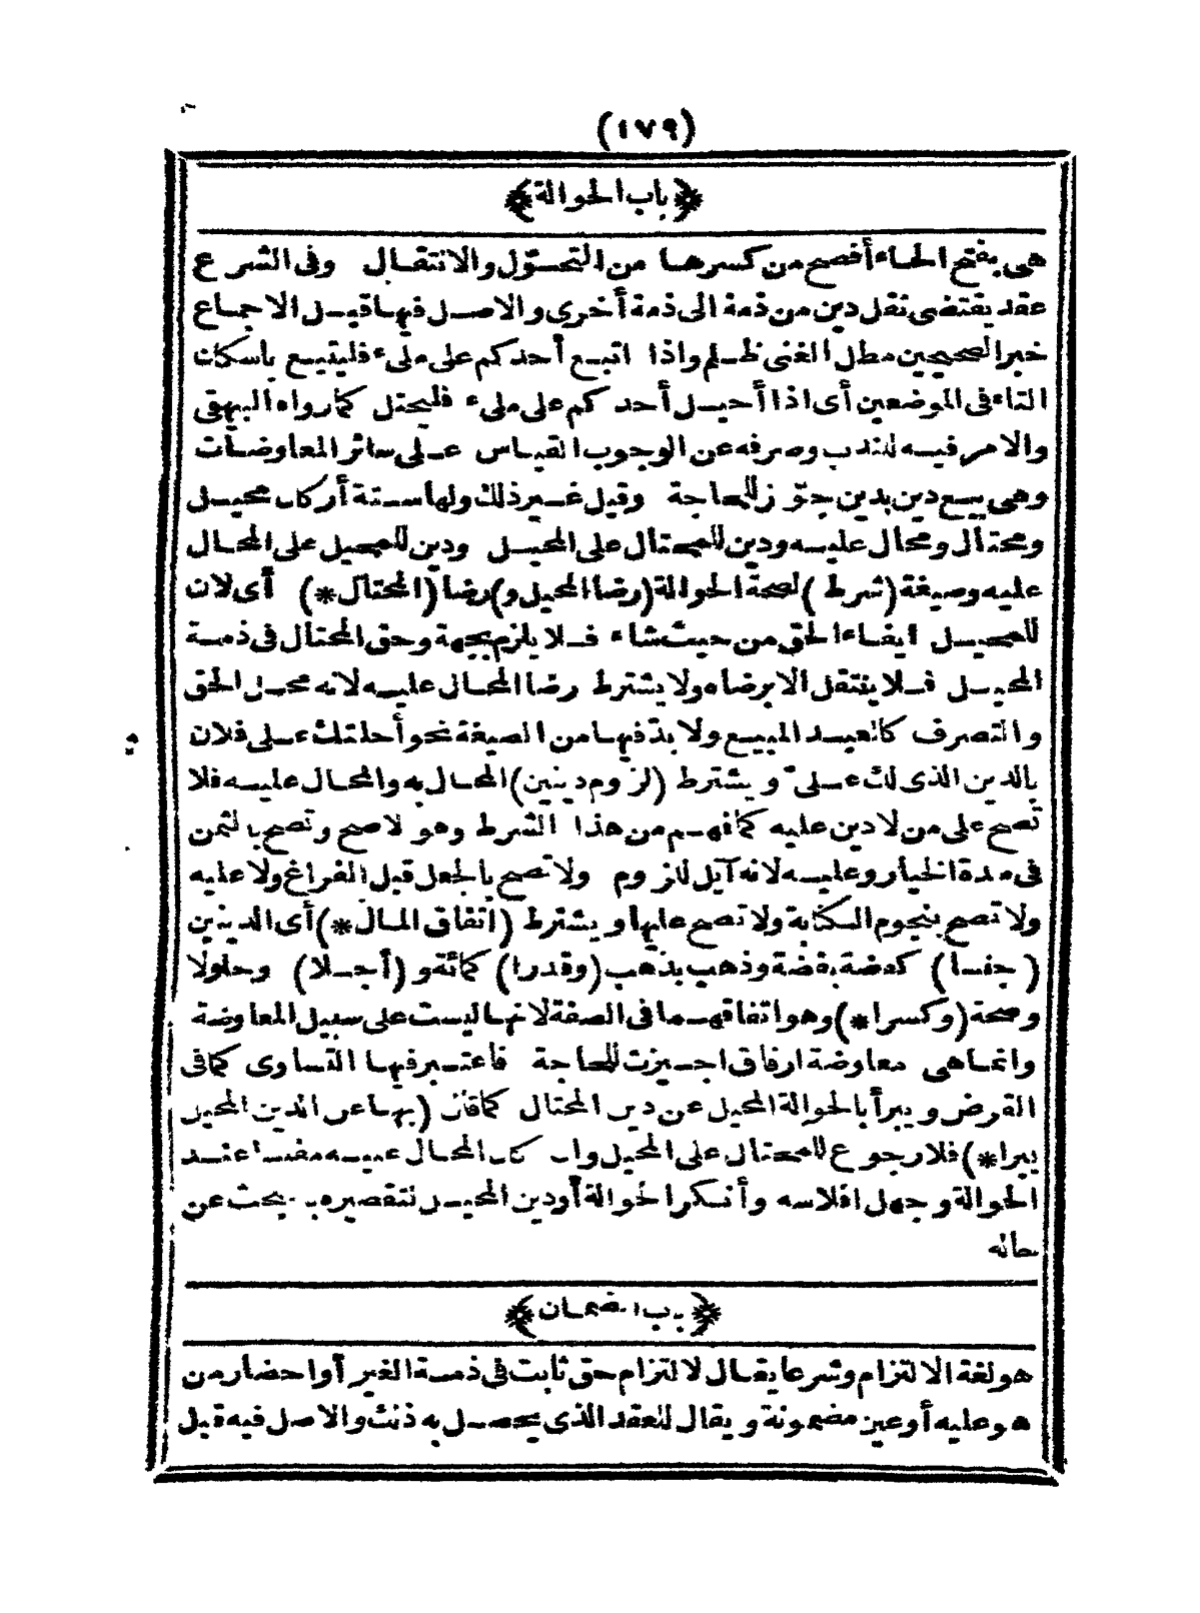 (١٧٩)
﴿باب الحوالة﴾
هى بفتح الحاء أفصح من كسرها من التحوّل والانتقال وفى الشرع
عقد يقتضى نقل دين من ذمة الى ذمة أخرى والاصل فيها قبل الاجماع
خبر الصحيحين مطل الغنى ظلم واذا اتبع أحدكم على ملىء فليتبع باسكان
التاء فى الموضعين أى اذا أحيل أحدكم على ملىء فليحتل كما رواه البيهقى
والامر فيه للندب وصرفه عن الوجوب القياس على سائر المعاوضات
وهى بيع دين بدين جوّز للحاجة وقيل غير ذلك ولها ستة أركان محيل
ومحتال ومحال عليه ودين للمحتال على المحيل ودين للمحيل على المحال
عليه وصيغة (شرط) لصحة الحوالة (رضا المحيل و) رضا (المحتال*) أى لان
للمحيل ايفاء الحق من حيث شاء فلا يلزم بجهة وحق المحتال فى ذمة
المحيل فلا ينتقل الا برضاه ولا يشترط رضا المحال عليه لانه محل الحق
والتصرف كالعبد المبيع ولا بدّ فيها من الصيغة نحو أحلتك على فلان
بالدين الذى لك علىّ ويشترط (لزوم دينين) المحال به والمحال عليه فلا
تصح على من لا دين عليه كما فهم من هذا الشرط وهو لاصح وتصح بالثمن
فى مدة الخيار وعليه لانه آيل للزوم ولا تصح بالجعل قبل الفراغ ولا عليه
ولا تصح بنجوم الكتابة ولا تصح عليها ويشترط (اتفاق المال*) أى الدينين
(جنسا) كفضة بفضة وذهب بذهب (وقدرا) كمائة و (أجلا) وحلولا
وصحة (وكسرا*) وهو اتفاقهما فى الصفة لانها ليست على سبيل المعاوضة
وانما هى معاوضة ارفاق اجيزت للحاجة فاعتبر فيها التساوى كما فى
القرض ويبرأ بالحوالة المحيل عن دين المحتال كما قال (بها عن الدين المحيل
يبرا*) فلا رجوع للمحتال على المحيل وان كان المحال عليه مفلسا عند
الحوالة وجهل افلاسه وأنكر الحوالة أو دين المحيل لتقصيره بـ بحث عن
حاله
﴿باب الضمان﴾
هو لغة الالتزام وشرعا يقال لالتزام حق ثابت فى ذمة الغير أو احضار من
هو عليه أو عين مضمونة ويقال للعقد الذى يحصل به ذلك والاصل فيه قبل